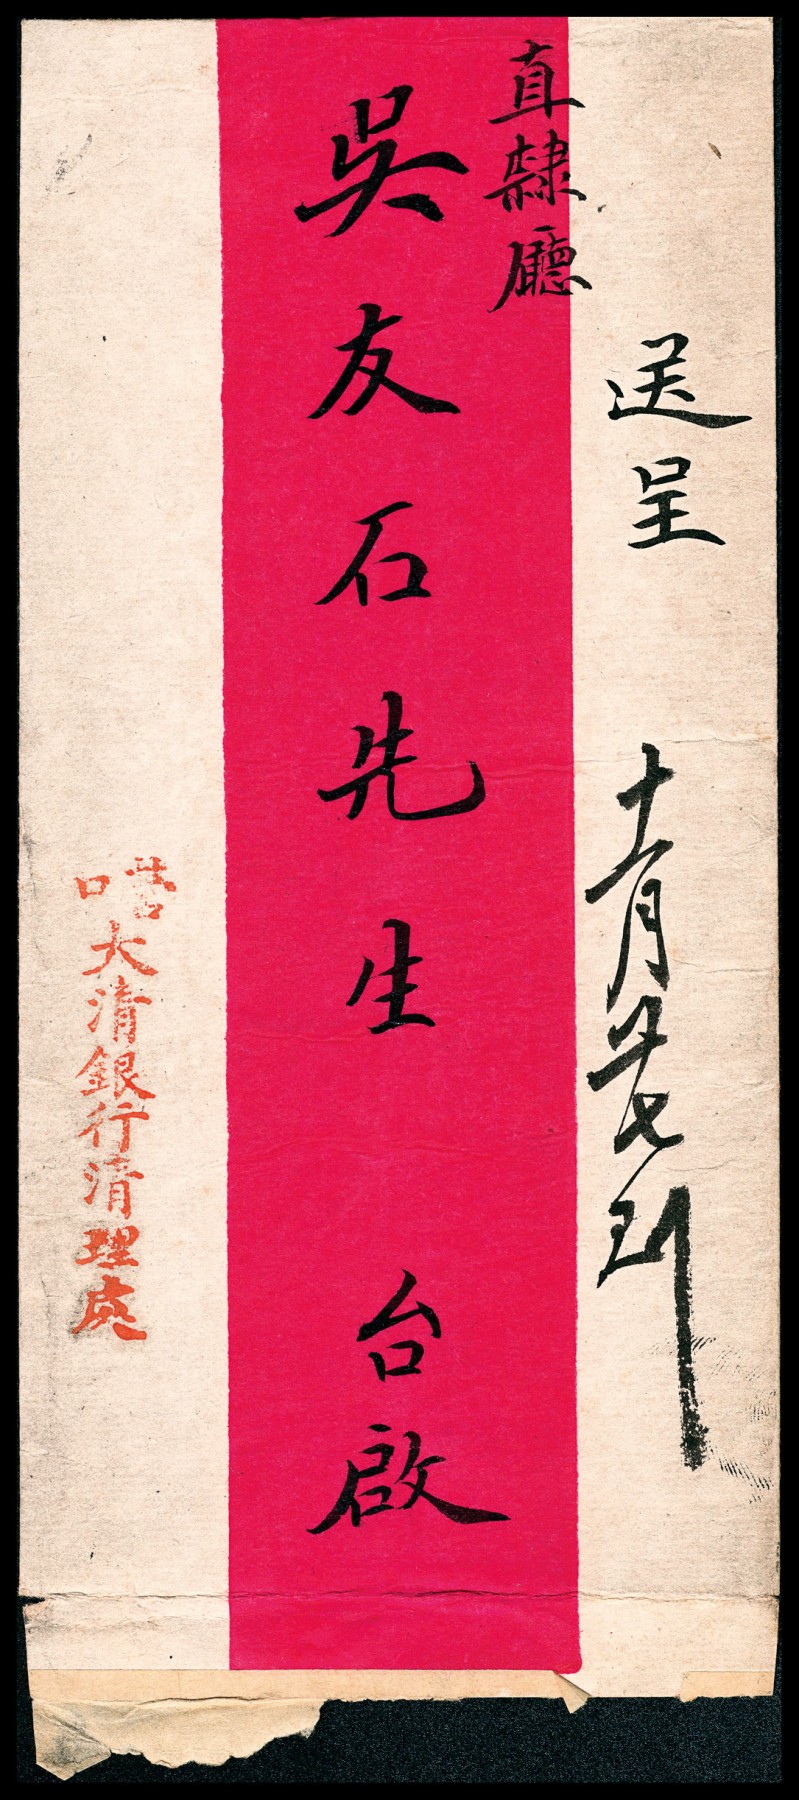 送呈
十一月廿七到
直隸廳
吳友石先生 台啟
營口
大清銀行清理處